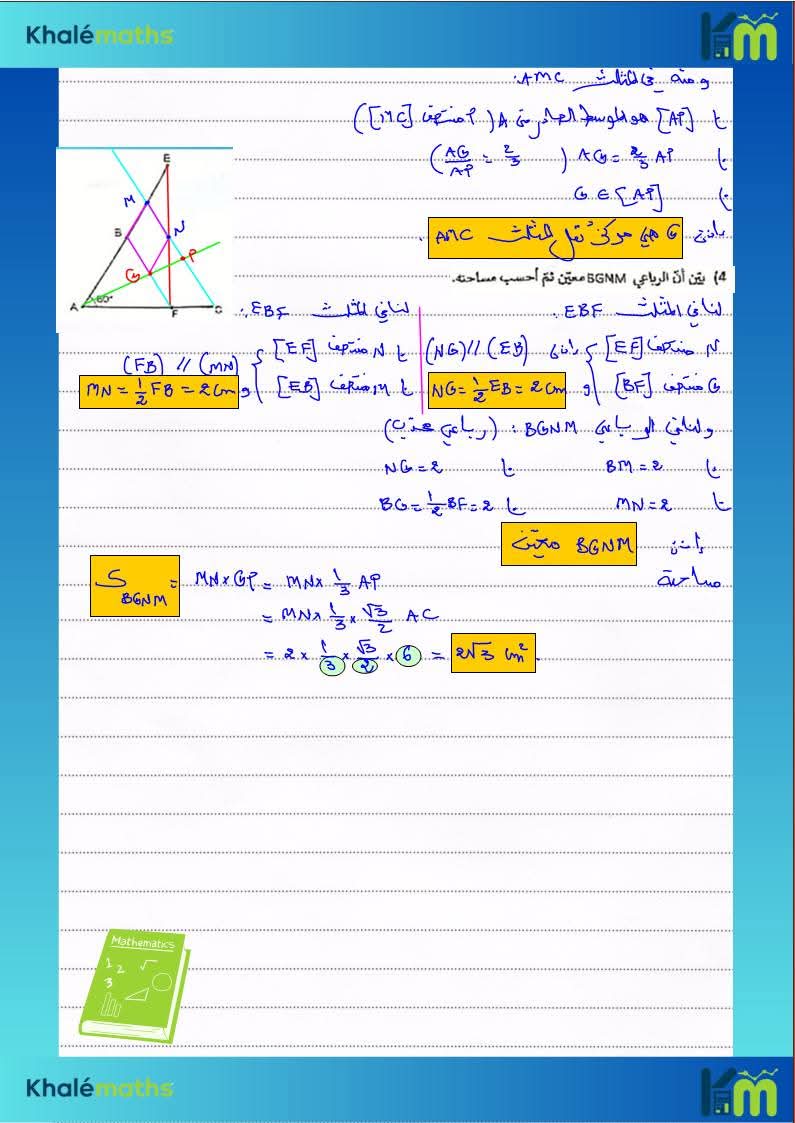 Khalémaths
Km
ومنه في المثلث AMC:
[AP] هو الموسط الصادر من A (P منتصف [MC])
AG = 2/3 AP (AG/AP = 2/3)
G ∈ [AP]
إذن G هي مركز ثقل المثلث AMC.
E
M
B
N
G
P
A
60°
F
C
4) بيّن أنّ الرباعي BGNM معيّن ثمّ أحسب مساحته.
لنا في المثلث EBF:
N منتصف [EF]
و G منتصف [BF]
إذن (NG) // (EB)
NG = 1/2 EB = 2cm
لنا في المثلث EBF:
N منتصف [EF]
M منتصف [EB]
(FB) // (MN)
و MN = 1/2 FB = 2cm
ولنا في الرباعي BGNM: (رباعي محدب)
BM = 2
NG = 2
MN = 2
BG = 1/2 BF = 2
إذن BGNM معيّن
مساحة
S BGNM = MN × GP = MN × 1/3 AP
= MN × 1/3 × √3/2 AC
= 2 × 1/3 × √3/2 × 6 = 2√3 cm².
Mathematics
1 2 √
3
Khalémaths
Km